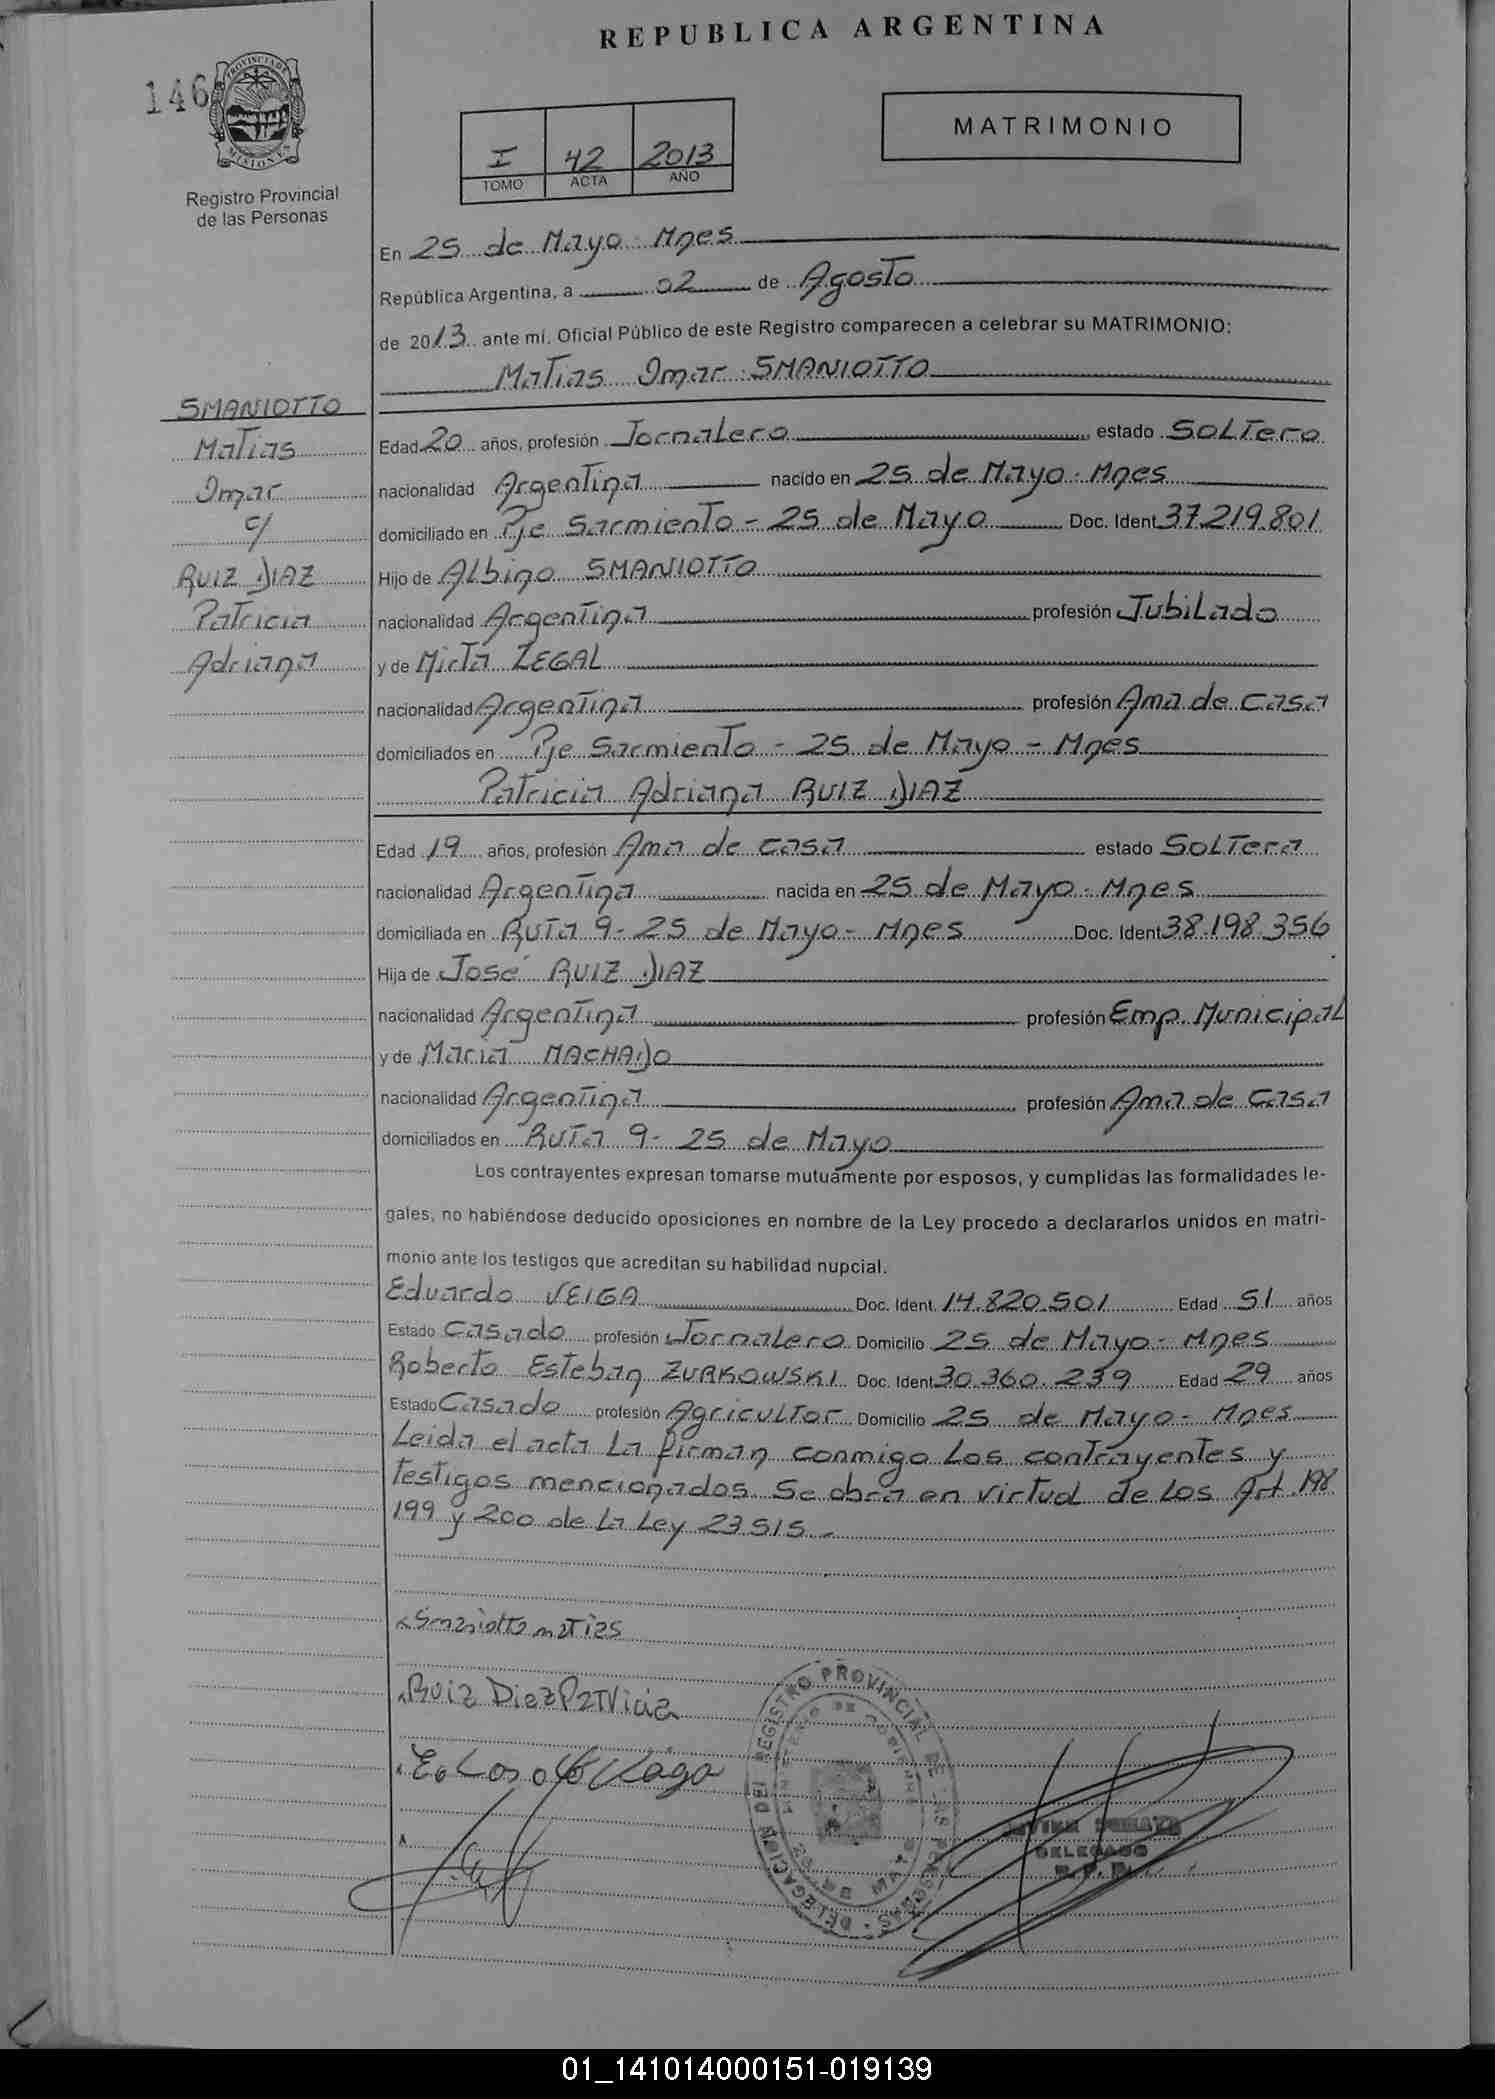 REPUBLICA ARGENTINA
146
PROVINCIA DE
MISIONES
Registro Provincial
de las Personas
I 42 2013
TOMO ACTA AÑO
MATRIMONIO
En 25 de Mayo - Mnes
República Argentina, a 02 de Agosto
de 2013 ante mí, Oficial Público de este Registro comparecen a celebrar su MATRIMONIO:
Matias Omar SMANIOTTO
SMANIOTTO
Matias
Omar
c/
RUIZ DIAZ
Patricia
Adriana
Edad 20 años, profesión Jornalero estado Soltero
nacionalidad Argentina nacido en 25 de Mayo - Mnes
domiciliado en Pje Sarmiento - 25 de Mayo Doc. Ident. 37.219.801
Hijo de Albino SMANIOTTO
nacionalidad Argentina profesión Jubilado
y de Mirta ZEGAL
nacionalidad Argentina profesión Ama de Casa
domiciliados en Pje Sarmiento - 25 de Mayo - Mnes
Patricia Adriana RUIZ DIAZ
Edad 19 años, profesión Ama de casa estado Soltera
nacionalidad Argentina nacida en 25 de Mayo - Mnes
domiciliada en Ruta 9 - 25 de Mayo - Mnes Doc. Ident. 38.198.356
Hija de José RUIZ DIAZ
nacionalidad Argentina profesión Emp. Municipal
y de Maria MACHADO
nacionalidad Argentina profesión Ama de Casa
domiciliados en Ruta 9 - 25 de Mayo
Los contrayentes expresan tomarse mutuamente por esposos, y cumplidas las formalidades le-
gales, no habiéndose deducido oposiciones en nombre de la Ley procedo a declararlos unidos en matri-
monio ante los testigos que acreditan su habilidad nupcial.
Eduardo VEIGA Doc. Ident. 14.820.501 Edad 51 años
Estado Casado profesión Jornalero Domicilio 25 de Mayo - Mnes
Roberto Esteban ZURKOWSKI Doc. Ident. 30.360.239 Edad 29 años
Estado Casado profesión Agricultor Domicilio 25 de Mayo - Mnes
Leida el acta la firman conmigo los contrayentes y
testigos mencionados. Se obra en virtud de los Art. 198
199 y 200 de la Ley 23515 -
Smaniotto matias
Ruiz Diaz Patricia
DELEGACION DEL REGISTRO PROVINCIAL DE LAS PERSONAS
DELEGADO
01_141014000151-019139